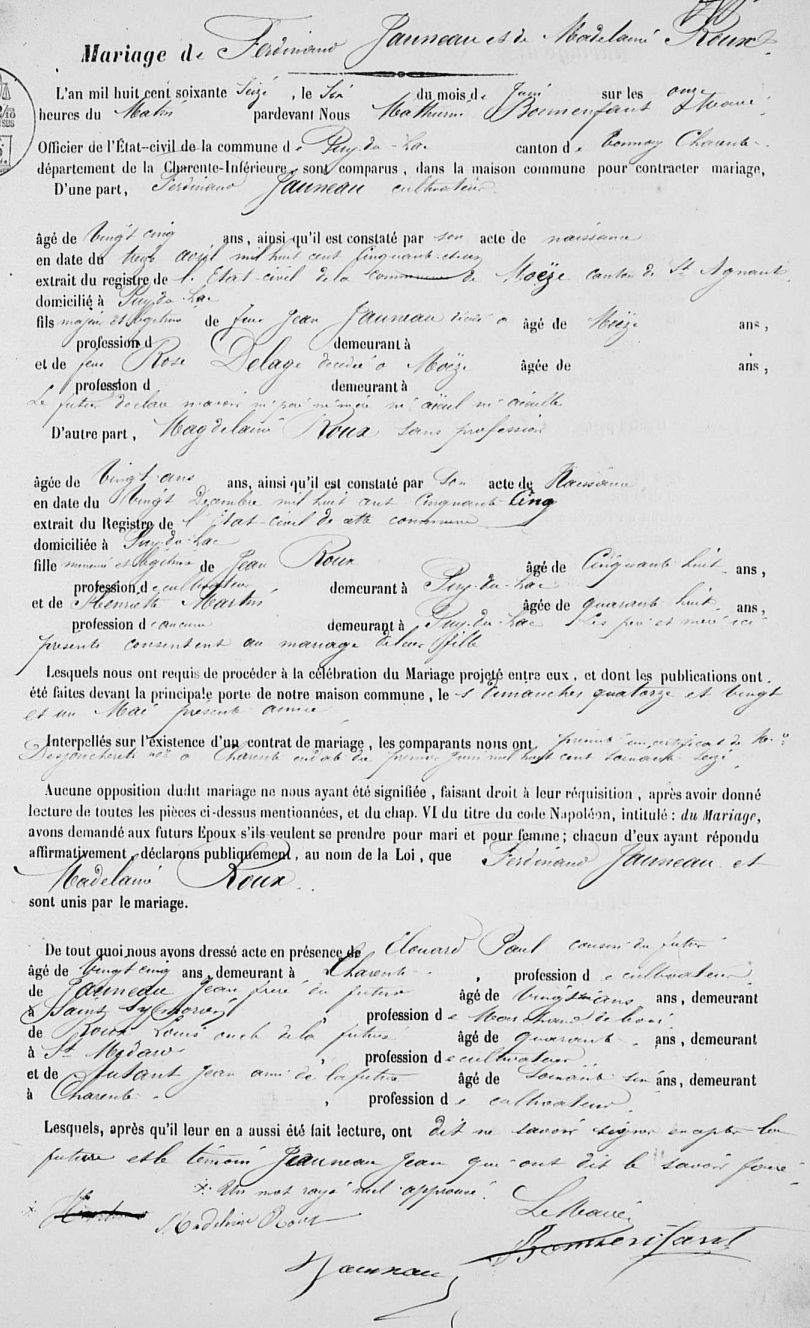 Mariage de Ferdinand Jauneau et de Madelaine Roux
L'an mil huit cent soixante Seize, le Six du mois de Juin sur les onze
heures du Matin pardevant Nous Mathurin Bonnenfant Maire
Officier de l'État-civil de la commune de Puy-du-Lac canton de Tonnay Charente
département de la Charente-Inférieure, sont comparus, dans la maison commune pour contracter mariage,
D'une part, Ferdinand Jauneau cultivateur
âgé de Vingt cinq ans, ainsi qu'il est constaté par son acte de naissance
en date du treize avril mil huit cent cinquante
extrait du registre de l'État-civil de la Commune de Moëze canton de St Agnant
domicilié à Puy-du-Lac
fils majeur et légitime de feu Jean Jauneau décédé à âgé de Moëze ans,
profession d demeurant à
et de feue Rose Delage décédée à Moëze âgée de ans,
profession d demeurant à
Le futur déclare n'avoir ni père ni mère ni aïeul ni aïeulle
D'autre part, Magdelaine Roux sans profession
âgée de Vingt ans ans, ainsi qu'il est constaté par Son acte de Naissance
en date du Vingt Décembre mil huit cent Cinquante Cinq
extrait du Registre de l'État-civil de cette commune
domiciliée à Puy-du-Lac
fille mineure et légitime de Jean Roux âgé de Cinquante huit ans,
profession de cultivateur demeurant à Puy-du-Lac
et de Henriette Martin âgée de quarante huit ans,
profession d aucune demeurant à Puy-du-Lac Les père et mère ici
présents consentent au mariage de leur fille
Lesquels nous ont requis de procéder à la célébration du Mariage projeté entre eux, et dont les publications ont
été faites devant la principale porte de notre maison commune, le s Dimanches quatorze et vingt
et un Mai présente année
Interpellés sur l'existence d'un contrat de mariage, les comparants nous ont présenté un certificat de
à Charente en date du premier Juin mil huit cent soixante Seize
Aucune opposition dudit mariage ne nous ayant été signifiée, faisant droit à leur réquisition, après avoir donné
lecture de toutes les pièces ci-dessus mentionnées, et du chap. VI du titre du code Napoléon, intitulé : du Mariage,
avons demandé aux futurs Epoux s'ils veulent se prendre pour mari et pour femme ; chacun d'eux ayant répondu
affirmativement, déclarons publiquement, au nom de la Loi, que Ferdinand Jauneau et
Madelaine Roux
sont unis par le mariage.
De tout quoi nous avons dressé acte en présence de Edouard Paul cousin du futur
âgé de Vingt cinq ans, demeurant à Charente, profession de cultivateur
de Jauneau Jean frère du futur âgé de vingt ans, demeurant
à Saint, profession de Marchand de bois
de Roux Louis oncle de la future âgé de quarante ans, demeurant
à St Médard, profession de cultivateur
et de Jean ami de la future âgé de Soixante ans, demeurant
à Charente, profession de cultivateur
Lesquels, après qu'il leur en a aussi été fait lecture, ont dit ne savoir signer excepté la
future et le témoin Jauneau Jean qui ont dit le savoir faire
x. Un mot rayé nul approuvé. Le Maire
Madelaine Roux
Bonnenfant
Jauneau